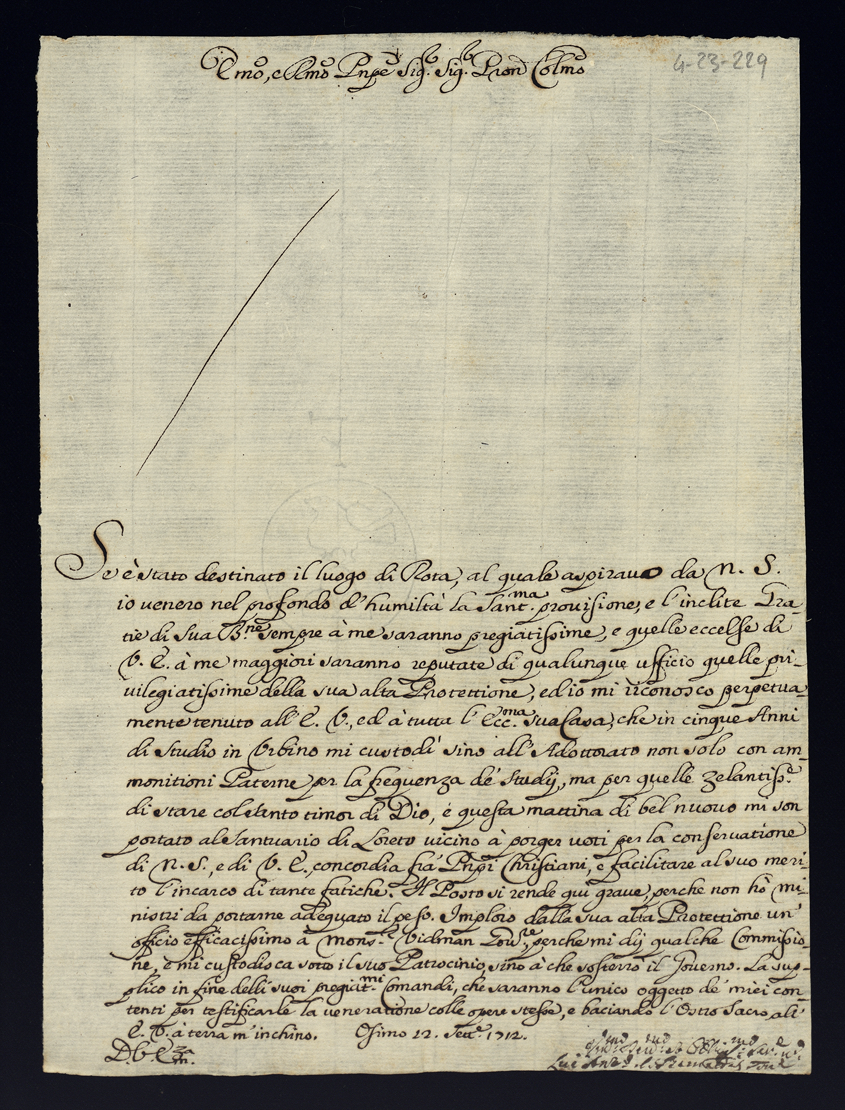 Emo, e Rmo Pnpe Sigr. Sigr. Pron Colmo
4-23-229
Se è stato destinato il luogo di Rota, al quale aspiravo da N. S.
io venero nel profondo d'humiltà la Sant.ma provisione, e l'inclite Gra-
tie di Sua B.ne sempre à me saranno pregiatissime, e quelle eccelse di
V. E. à me maggiori saranno reputate di qualunque ufficio quelle pri-
vilegiatissime della sua alta Protettione, ed io mi riconosco perpetua-
mente tenuto all'E. V., ed à tutta l'Ecc.ma sua Casa, che in cinque Anni
di Studio in Urbino mi custodì sino all'Adottorato non solo con am-
monitioni Paterne per la frequenza de' Studij, ma per quelle zelantiss.e
di stare col Santo timor di Dio, e questa mattina di bel nuovo mi son
portato al Santuario di Loreto vicino à porger voti per la conservatione
di N. S., e di V. E., concordia frà Pnpi Christiani, e facilitare al suo meri
to l'incarco di tante fatiche. Il Posto si rende quì grave, perche non hò mi-
nistri da portarne adeguato il peso. Imploro dalla sua alta Protettione un'
officio efficacissimo à Mons.r Vidman Gov.re, perche mi dij qualche Commissio-
ne, e mi custodisca sotto il suo Patrocinio, sino à che sosterrò il Governo. La sup-
plico in fine delli suoi pregiat.mi Comandi, che saranno l'unico oggetto de' miei con-
tenti per testificarle la veneratione colle opere stesse, e baciando l'Ostro Sacro all'
E. V. à terra m'inchino. Osimo 12. Sett.e 1712.
D. V. Em.za